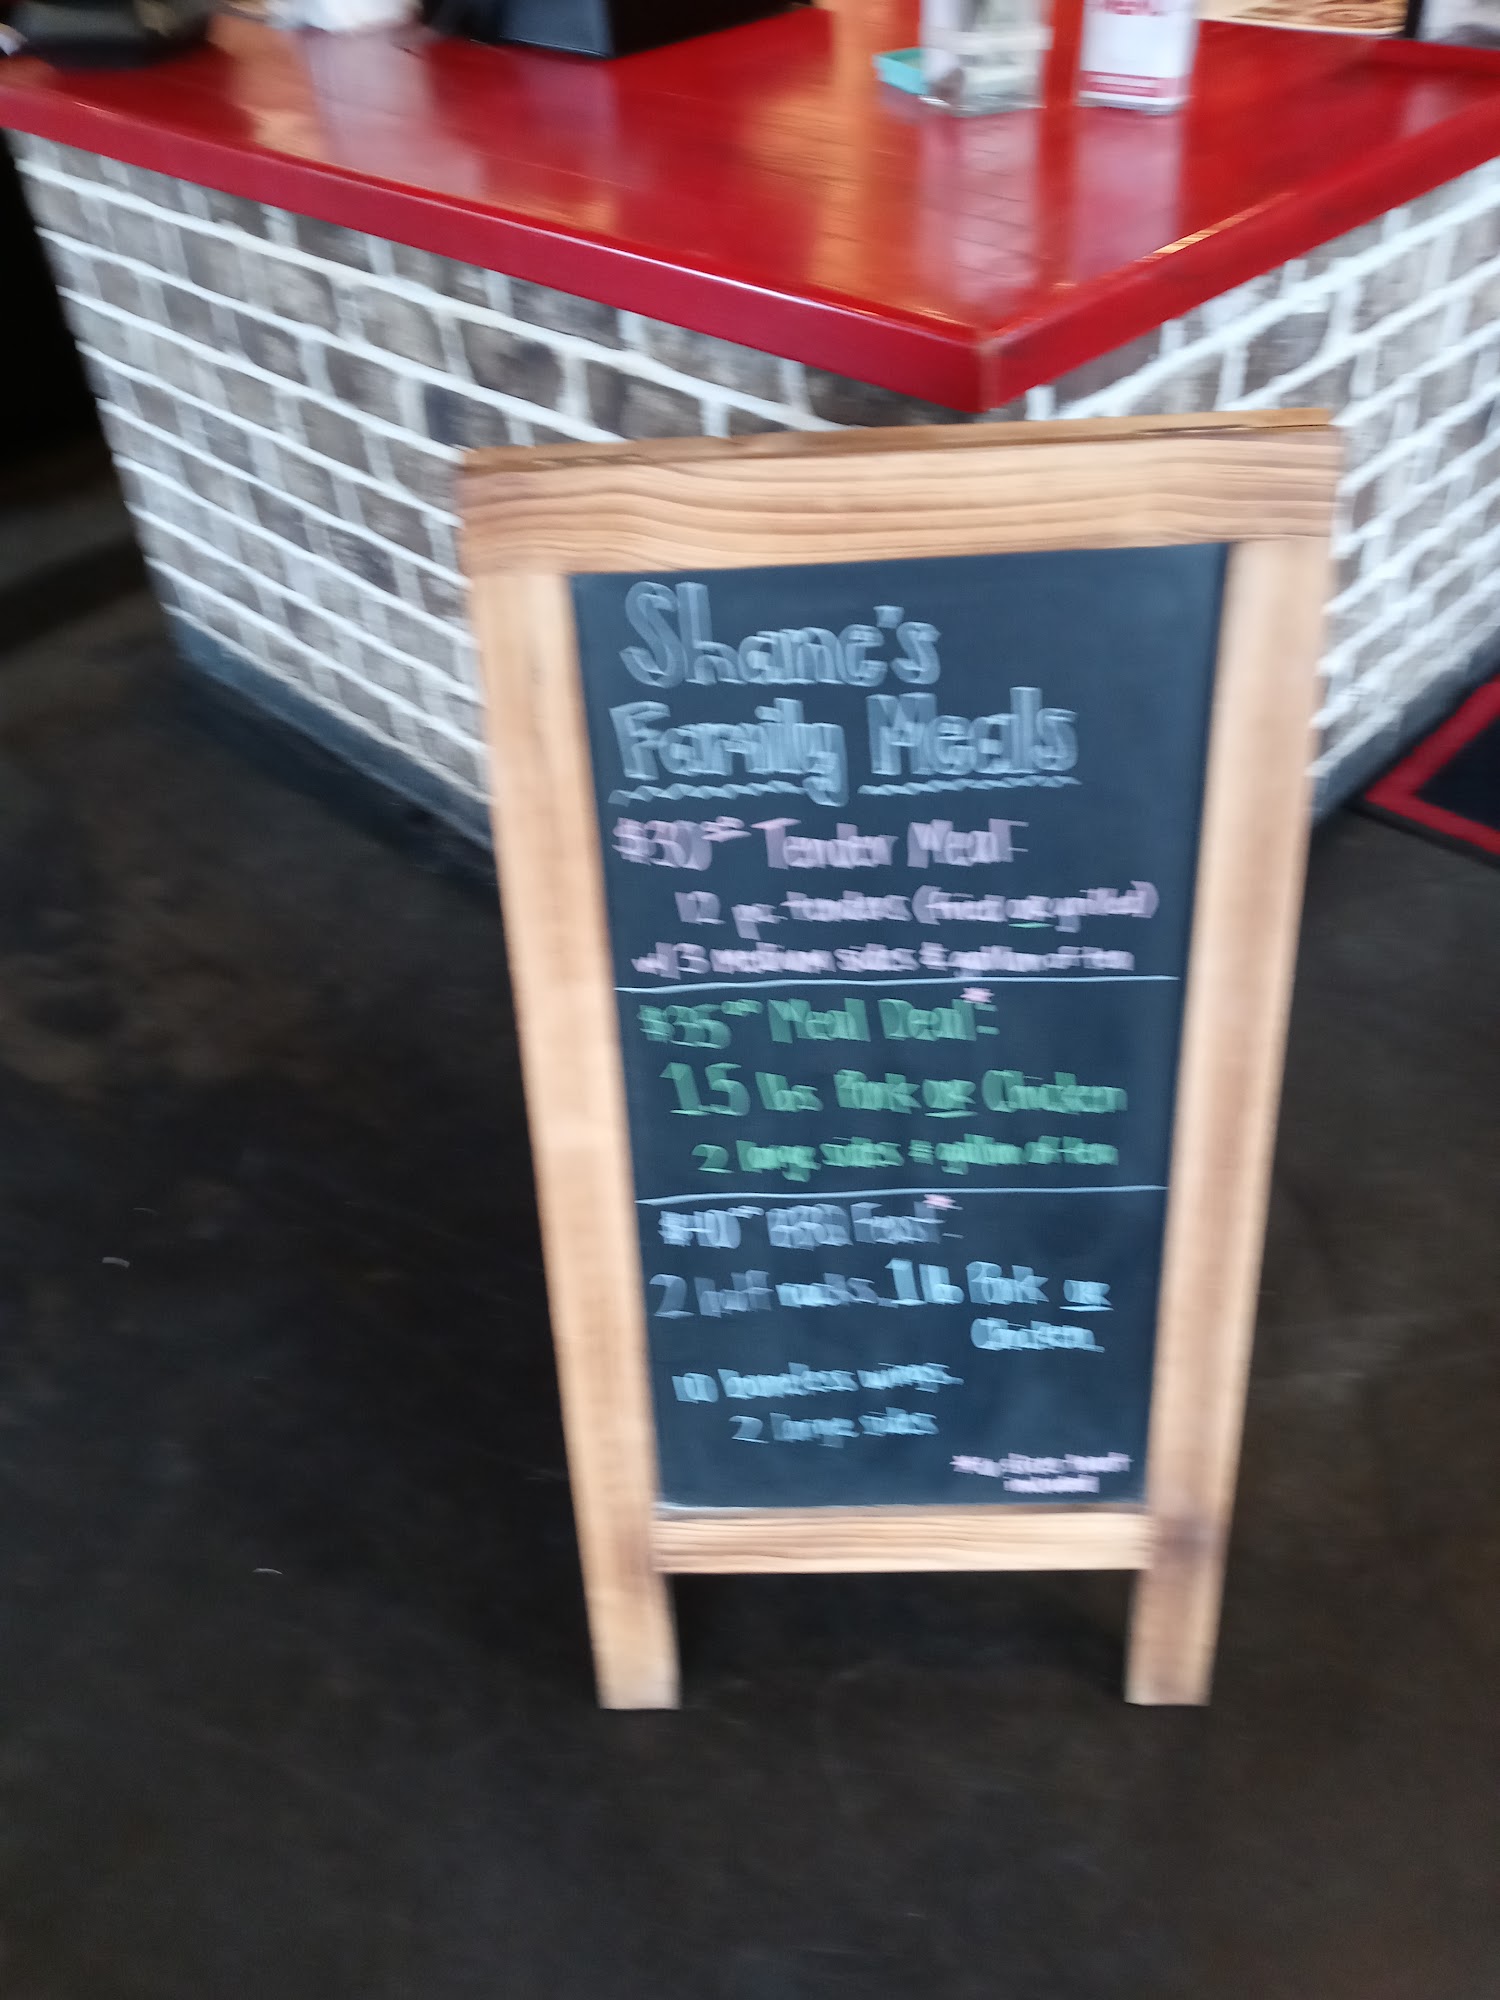 Shane's
Family Meals
$30⁰⁰ Tender Meal-
12 pc. tenders (fried or grilled)
w/ 3 medium sides & gallon of tea
$35⁰⁰ Meal Deal*-
1.5 lbs Pork or Chicken
2 large sides & gallon of tea
$40⁰⁰ BBQ Feast*-
2 half racks, 1 lb Pork or
Chicken,
10 boneless wings,
2 large sides